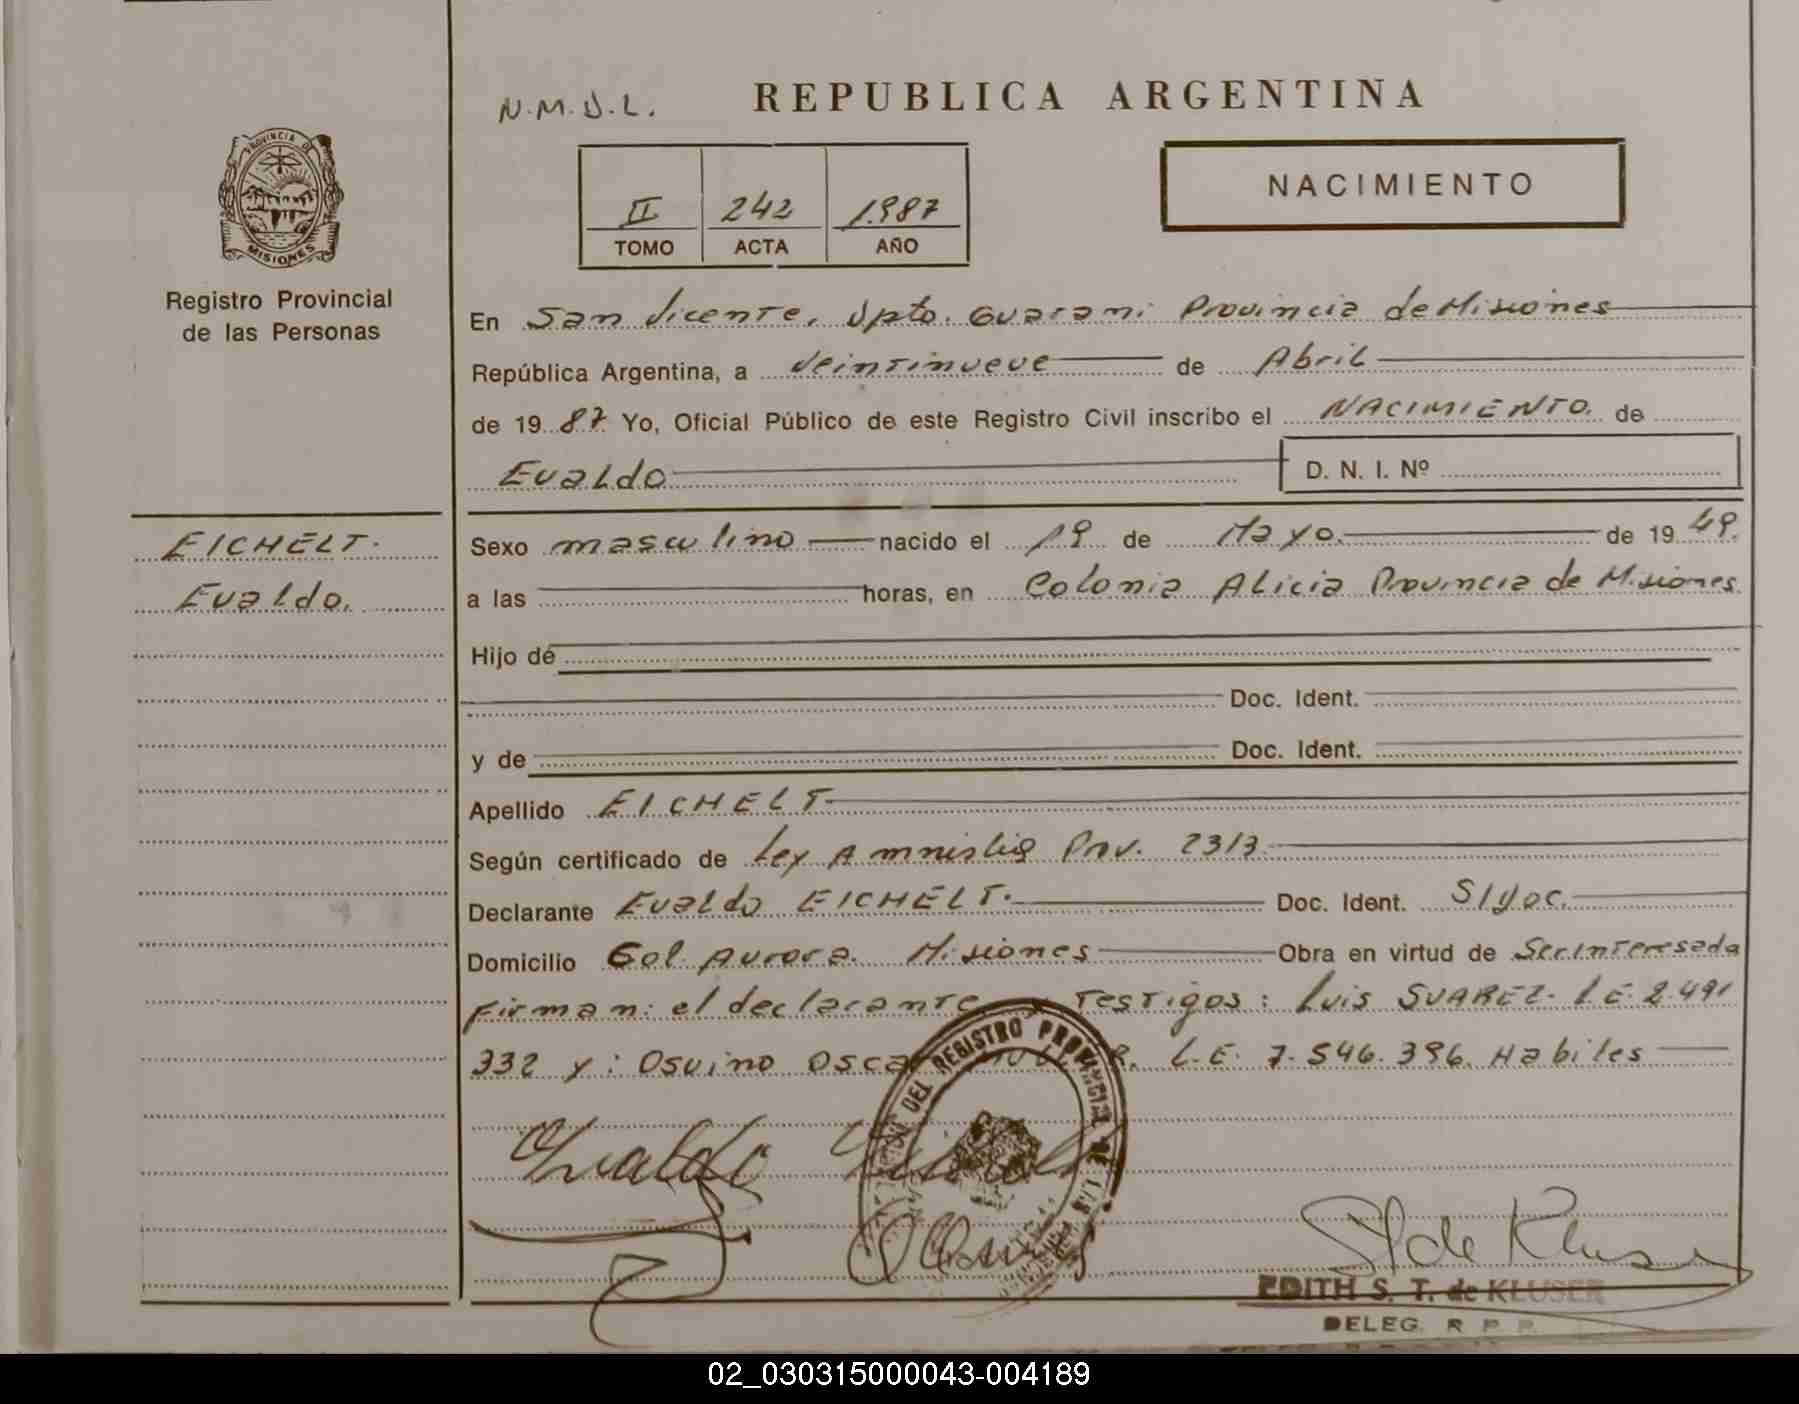 N.M.D.L.
REPUBLICA ARGENTINA
PROVINCIA DE
MISIONES
Registro Provincial
de las Personas
II 242 1987
TOMO ACTA AÑO
NACIMIENTO
En San Vicente, Dpto. Guarani Provincia de Misiones
República Argentina, a Veintinueve de Abril
de 19 87 Yo, Oficial Público de este Registro Civil inscribo el NACIMIENTO de
Evaldo D. N. I. Nº
EICHELT.
Evaldo.
Sexo masculino nacido el 19 de Mayo. de 19 49.
a las horas, en Colonia Alicia Provincia de Misiones
Hijo de
Doc. Ident.
y de Doc. Ident.
Apellido EICHELT
Según certificado de Ley Amnistia Prv. 2313.
Declarante Evaldo EICHELT. Doc. Ident. S/doc.
Domicilio Col. Aurora. Misiones Obra en virtud de Ser Interesada
Firman: el declarante Testigos: Luis SUAREZ- L.E. 2.491
332 y: Osvino Osca R. L.E. 7.546.396. Habiles
DEL REGISTRO PROVINCIAL DE LAS
Evaldo
S T de Kluser
EDITH S. T. de KLUSER
DELEG. R. P. P.
02_030315000043-004189